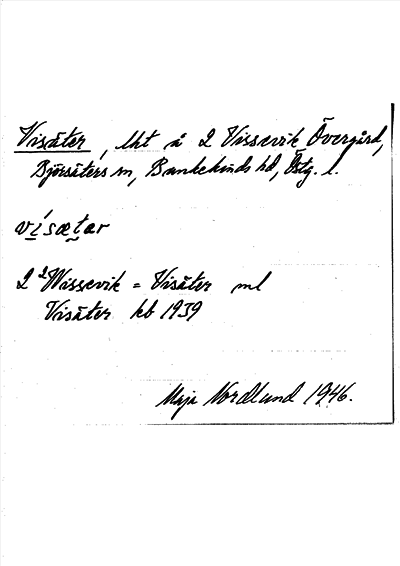 Visäter, lht å 2 Vissevik Övergård,
Björsäters sn, Bankekinds hd, Östg. l.
vi´sætar
2 ²Wissevik = Visäter ml
Visäter kb 1939
Maja Nordlund 1946.